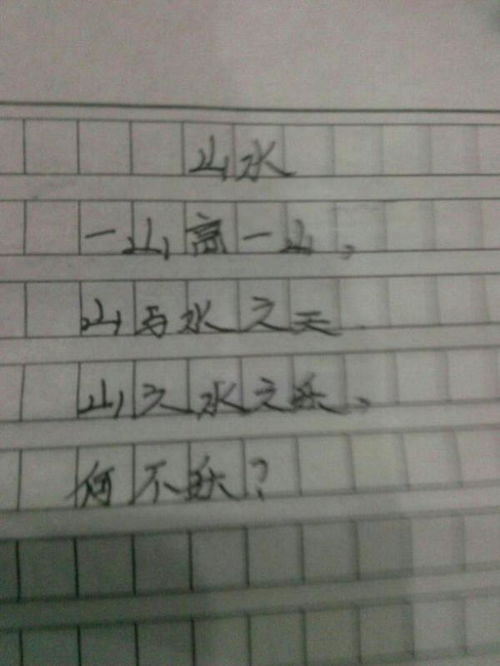 山水
一山高一山,
山与水之天
山之水之跃,
何不跃?